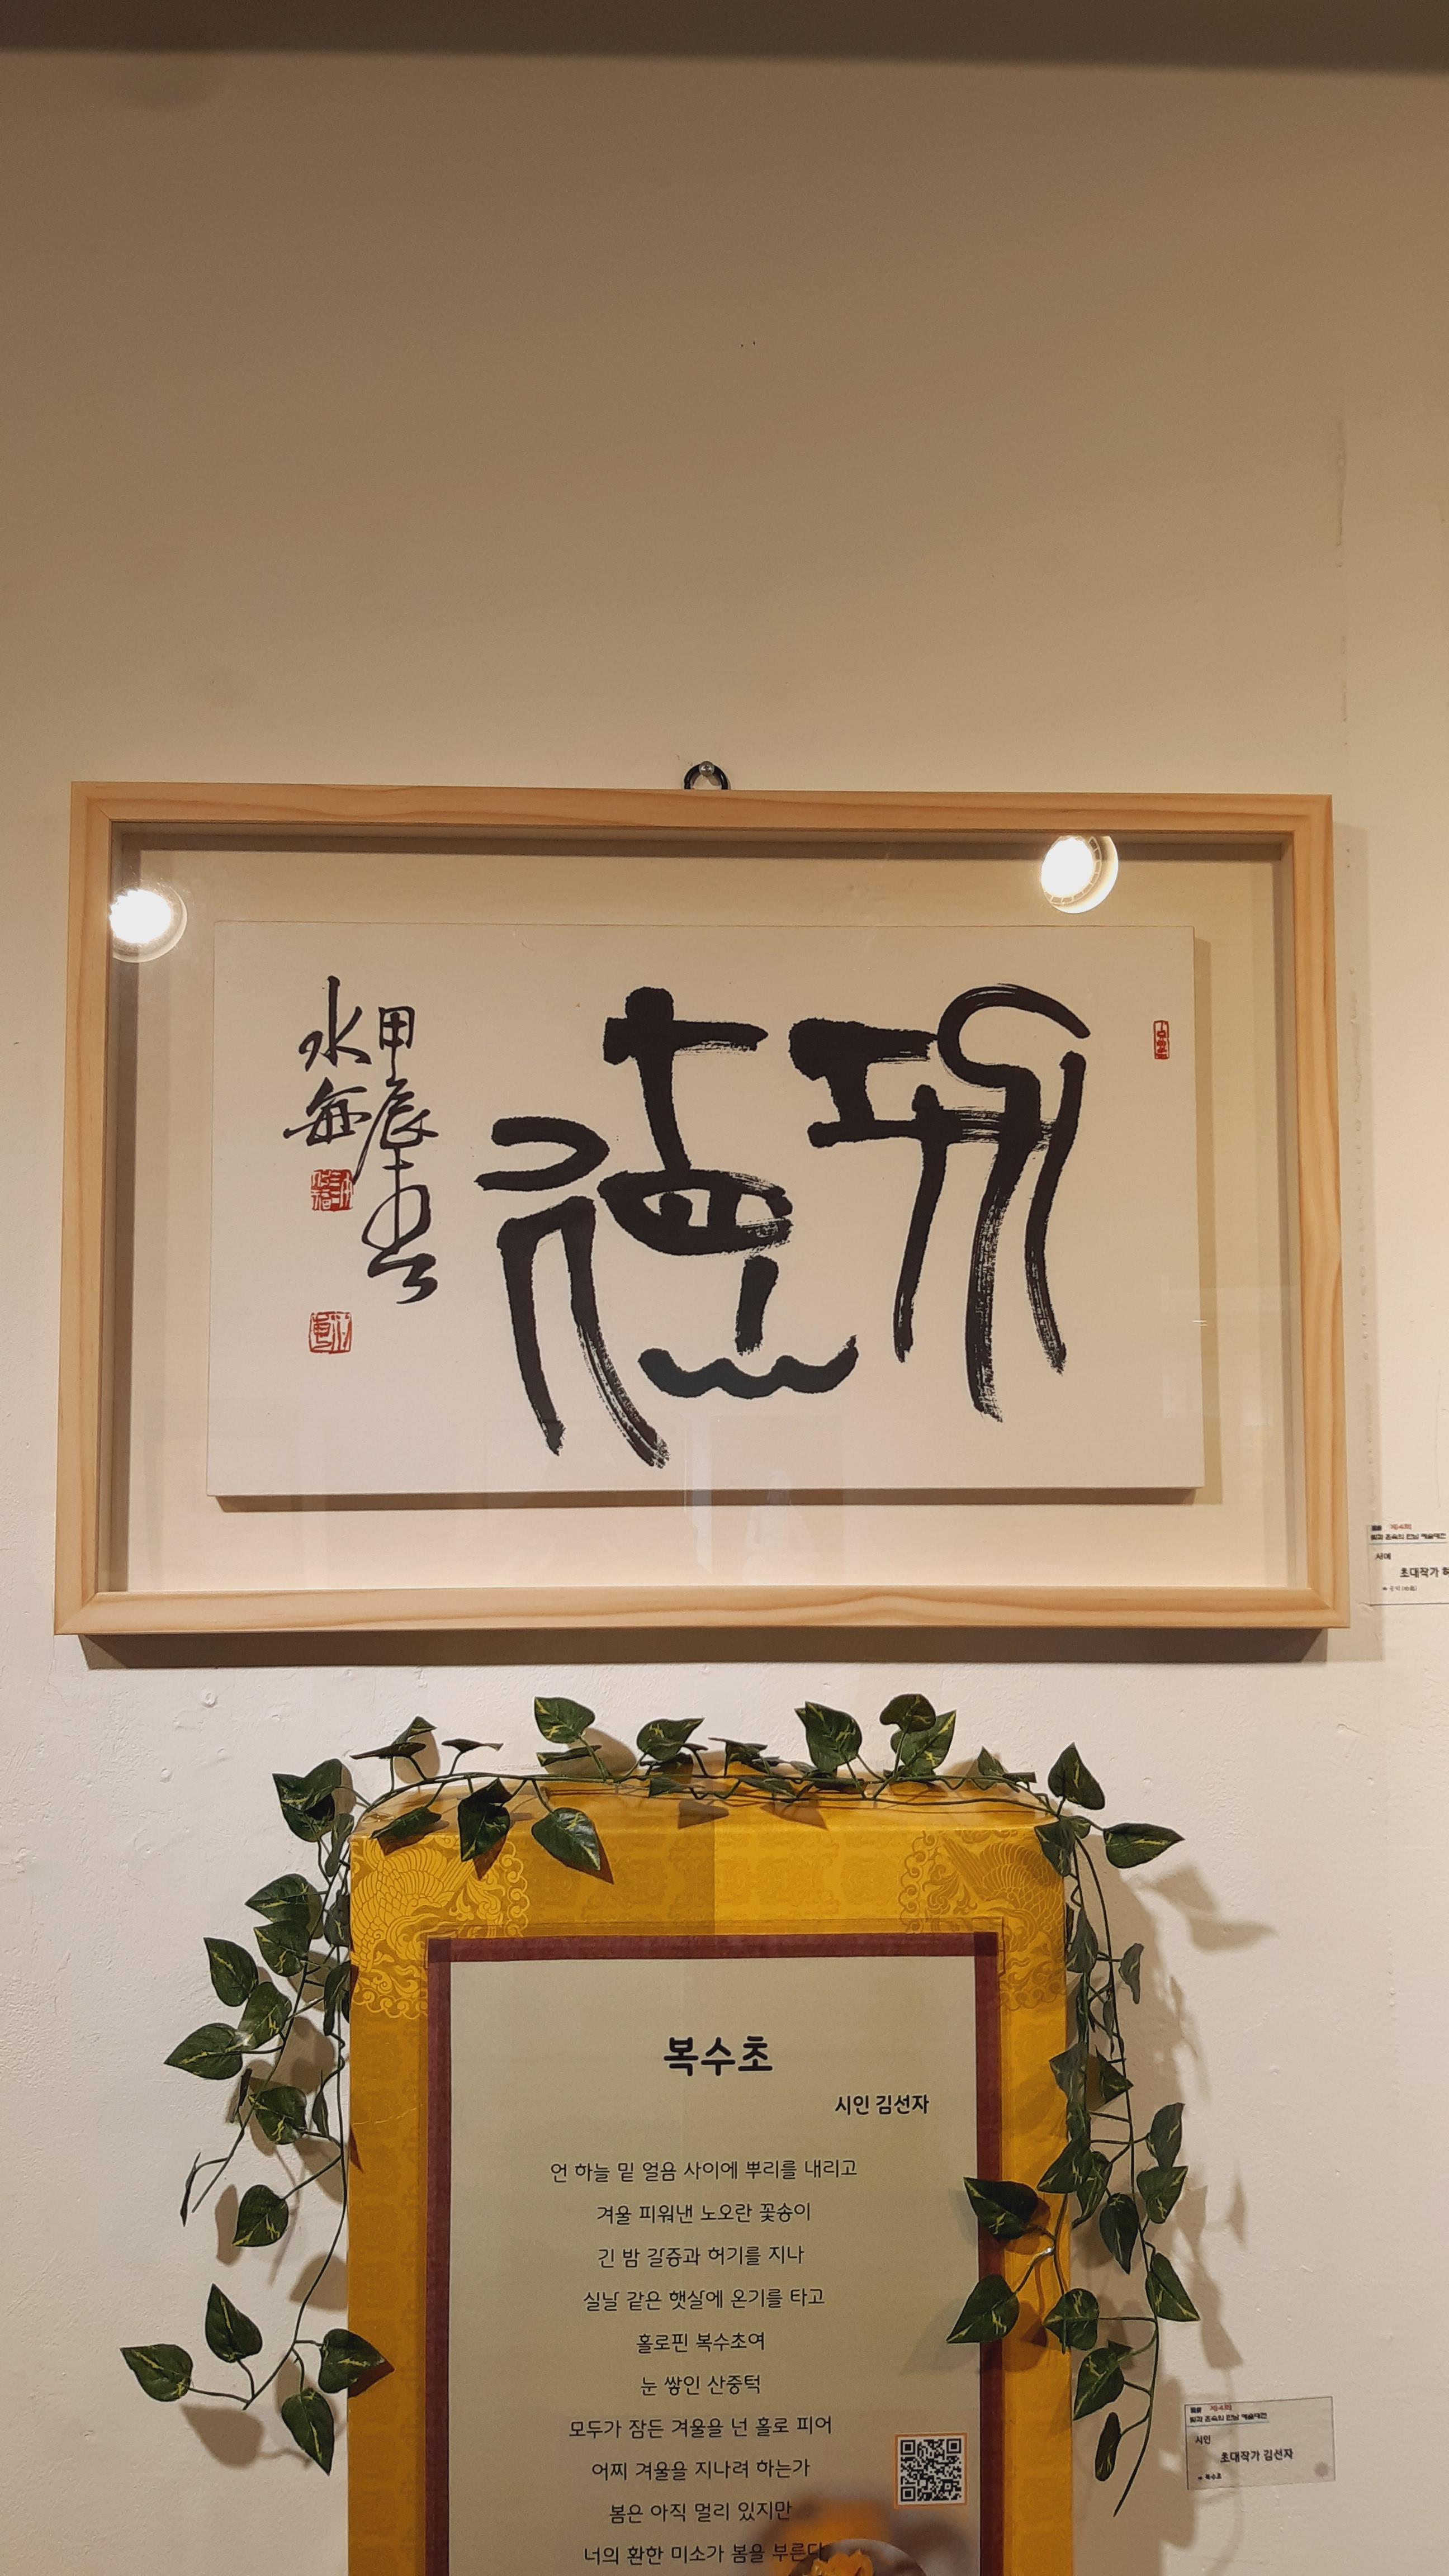 功德
甲辰春
水
제4회
서예
초대작가
복수초
시인 김선자
언 하늘 밑 얼음 사이에 뿌리를 내리고
겨울 피워낸 노오란 꽃송이
긴 밤 갈증과 허기를 지나
실날 같은 햇살에 온기를 타고
홀로핀 복수초여
눈 쌓인 산중턱
모두가 잠든 겨울을 넌 홀로 피어
어찌 겨울을 지나려 하는가
봄은 아직 멀리 있지만
너의 환한 미소가 봄을 부른다
제4회
시인
초대작가 김선자
복수초